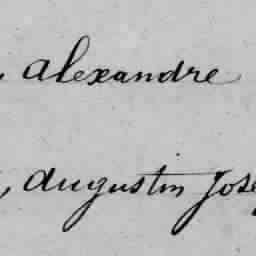 , Alexandre
, Augustin Jose